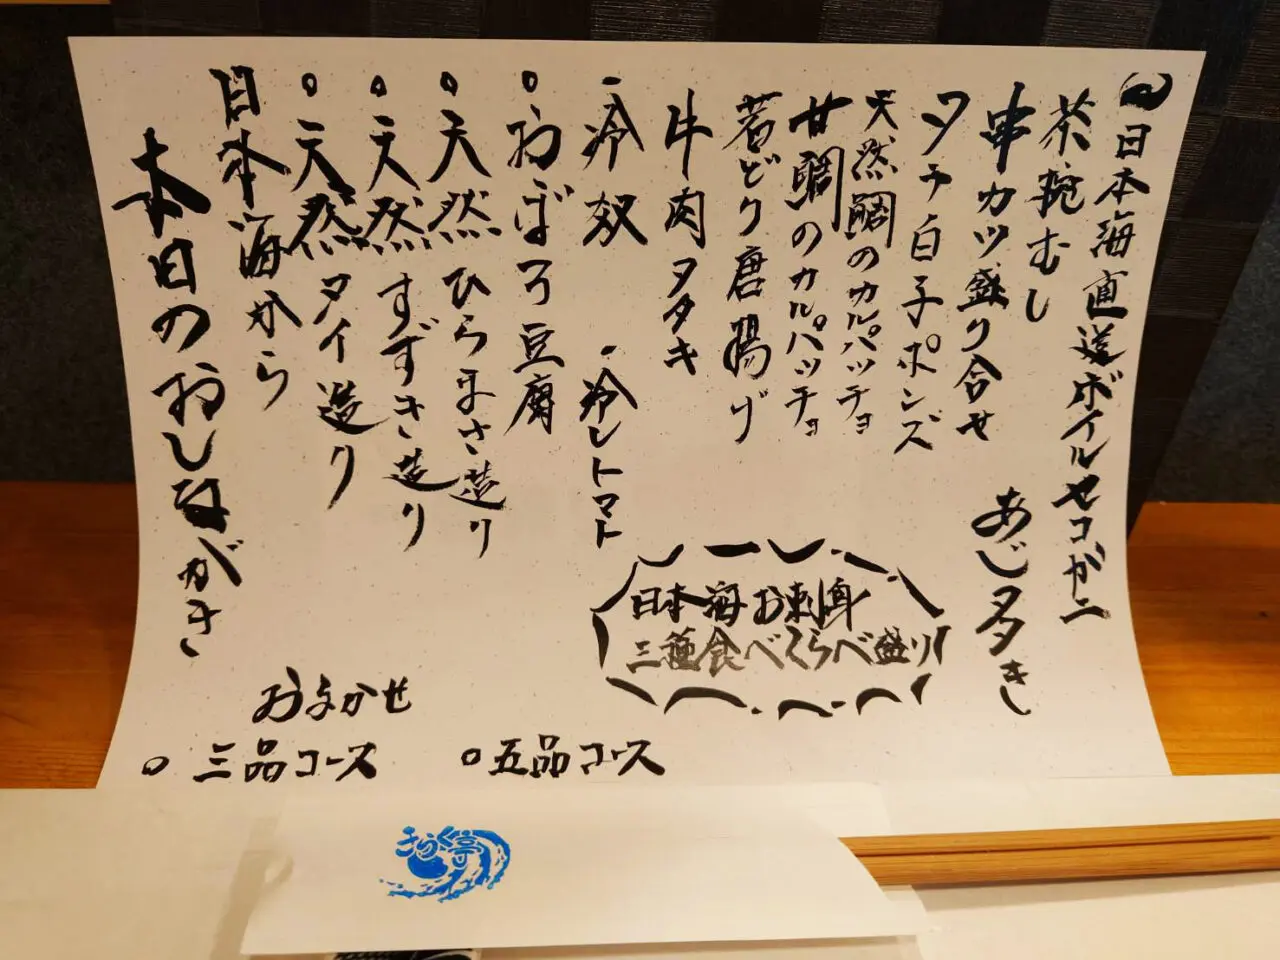 本日のおしながき
日本海から
○天然タイ造り
○天然すずき造り
○天然ひらまさ造り
○おぼろ豆腐
・冷奴 ・冷しトマト
牛肉タタキ
若どり唐揚げ
甘鯛のカルパッチョ
天然鯛のカルパッチョ
タチ白子ポンズ
串カツ盛り合せ
あじタタき
茶碗むし
日本海直送ボイルセコガニ
日本海お刺身
三種食べくらべ盛り
おまかせ
○三品コース ○五品コース
きらく亭